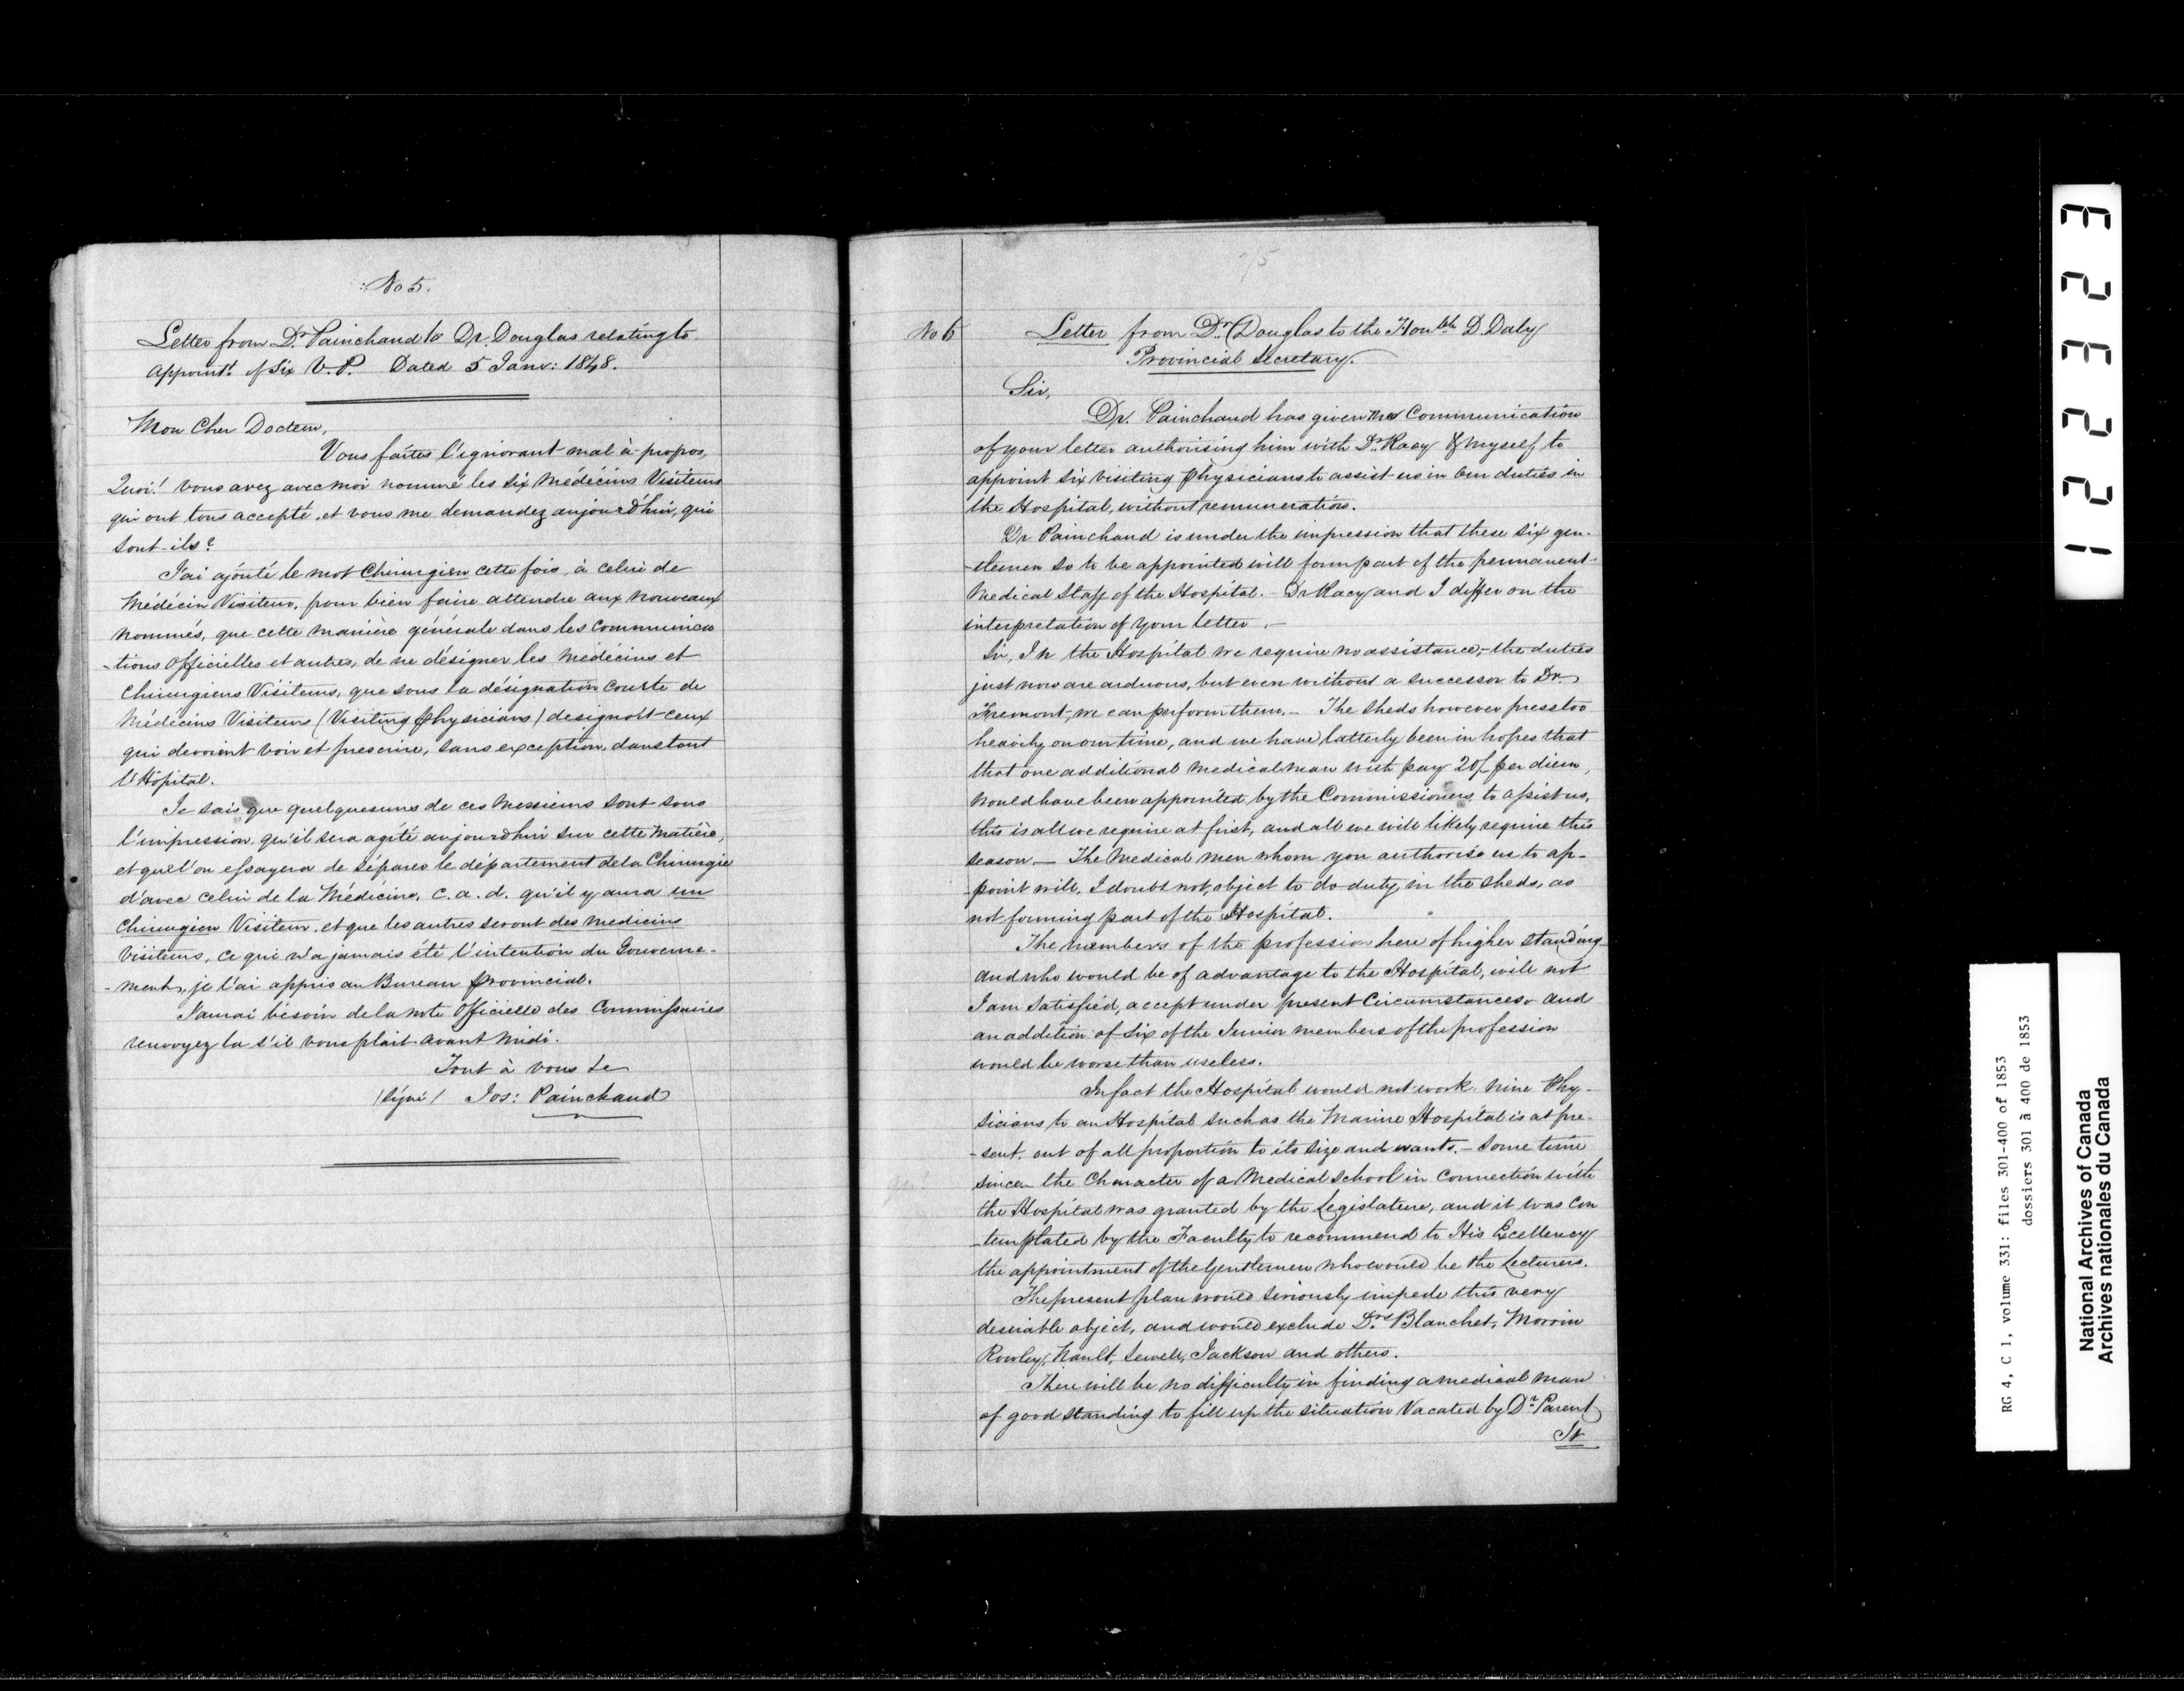 No 5.
Letter from Dr. Painchaud to Dr. Douglas relating to
appoint.t of Six V. P. Dated 5 Janv: 1848.
Mon Cher Docteur,
Vous faites l'ignorant mal à-propos,
Quoi! vous avez avec moi nommé les six Médécins Visiteurs
qui ont tous accepté, et vous me demandez aujourd'hui, qui
sont-ils?
J'ai ajouté le mot Chirurgien cette fois, à celui de
Médécin Visiteur, pour bien faire attendre aux nouveaux
nommés, que cette manière générale dans les communica
-tions Officielles et autres, de ne désigner les Médécins et
Chirurgiens Visiteurs, que sous la désignation Courte de
Médécins Visiteurs (Visiting Physicians) designoit ceux
qui devoient voir et prescrire, sans exception, dans tout
l'Hôpital.
Je sais que quelquesuns de ces Messieurs sont sous
l'impression qu'il sera agité aujourd'hui sur cette matière,
et que l'on essayera de séparer le département de la Chirurgie
d'avec celui de la Médécine, c. a. d. qu'il y aura un
Chirurgien Visiteur, et que les autres seront des medecins
Visiteurs, ce qui n'a jamais été l'intention du Gouverne-
-ment, je l'ai appris au Bureau Provincial.
J'aurai bésoin de la note Officielle des Commissaires
renvoyez la s'il vous plait avant midi.
Tout à vous &c
(Signé) Jos: Painchaud
No 6
Letter from Dr. Douglas to the Honble D. Daly
Provincial Secretary.
Sir,
Dr. Painchaud has given me Communication
of your letter authorising him with Dr. Racey & Myself, to
appoint six visiting Physicians to assist us in our duties in
the Hospital, without remuneration.
Dr Painchaud is under the impression that these six gen-
-tlemen so to be appointed will form part of the permanent
Medical Staff of the Hospital.- Dr Racey and I differ on the
interpretation of your letter.-
Sir, In the Hospital we require no assistance,- the duties
just now are arduous, but even without a successor to Dr.
Fremont, we can perform them.- The Sheds however press too
heavily on our time, and we have latterly been in hopes that
that one additional Medical man with pay 20/ per diem,
would have been appointed by the Commissioners to assist us,
this is all we require at first, and all we will likely require this
season.- The Medical men whom you authorise us to ap-
-point will, I doubt not, object to do duty in the Sheds, as
not forming part of the Hospital.
The members of the profession here of higher standing
and who would be of advantage to the Hospital, will not
I am Satisfied, accept under present Circumstances and
an addition of Six of the Junior members of the profession
would be worse than useless.
In fact the Hospital would not work. Nine Phy-
sicians to an Hospital such as the Marine Hospital is at pre-
-sent. out of all proportion to its size and wants.- Some time
since the Character of a Medical School in Connection with
the Hospital was granted by the Legislature, and it was Con
-templated by the Faculty to recommend to His Excellency
the appointment of the Gentlemen who would be the Lecturers.
The present plan would seriously impede this very
desirable object, and would exclude Drs Blanchet, Morrin
Rowley, Nault, Sewell, Jackson and others.
There will be no difficulty in finding a medical man
of good standing to fill up the situation Vacated by Dr Parent
122323
RG 4, C 1, volume 331: files 301-400 of 1853
dossiers 301 à 400 de 1853
National Archives of Canada
Archives nationales du Canada